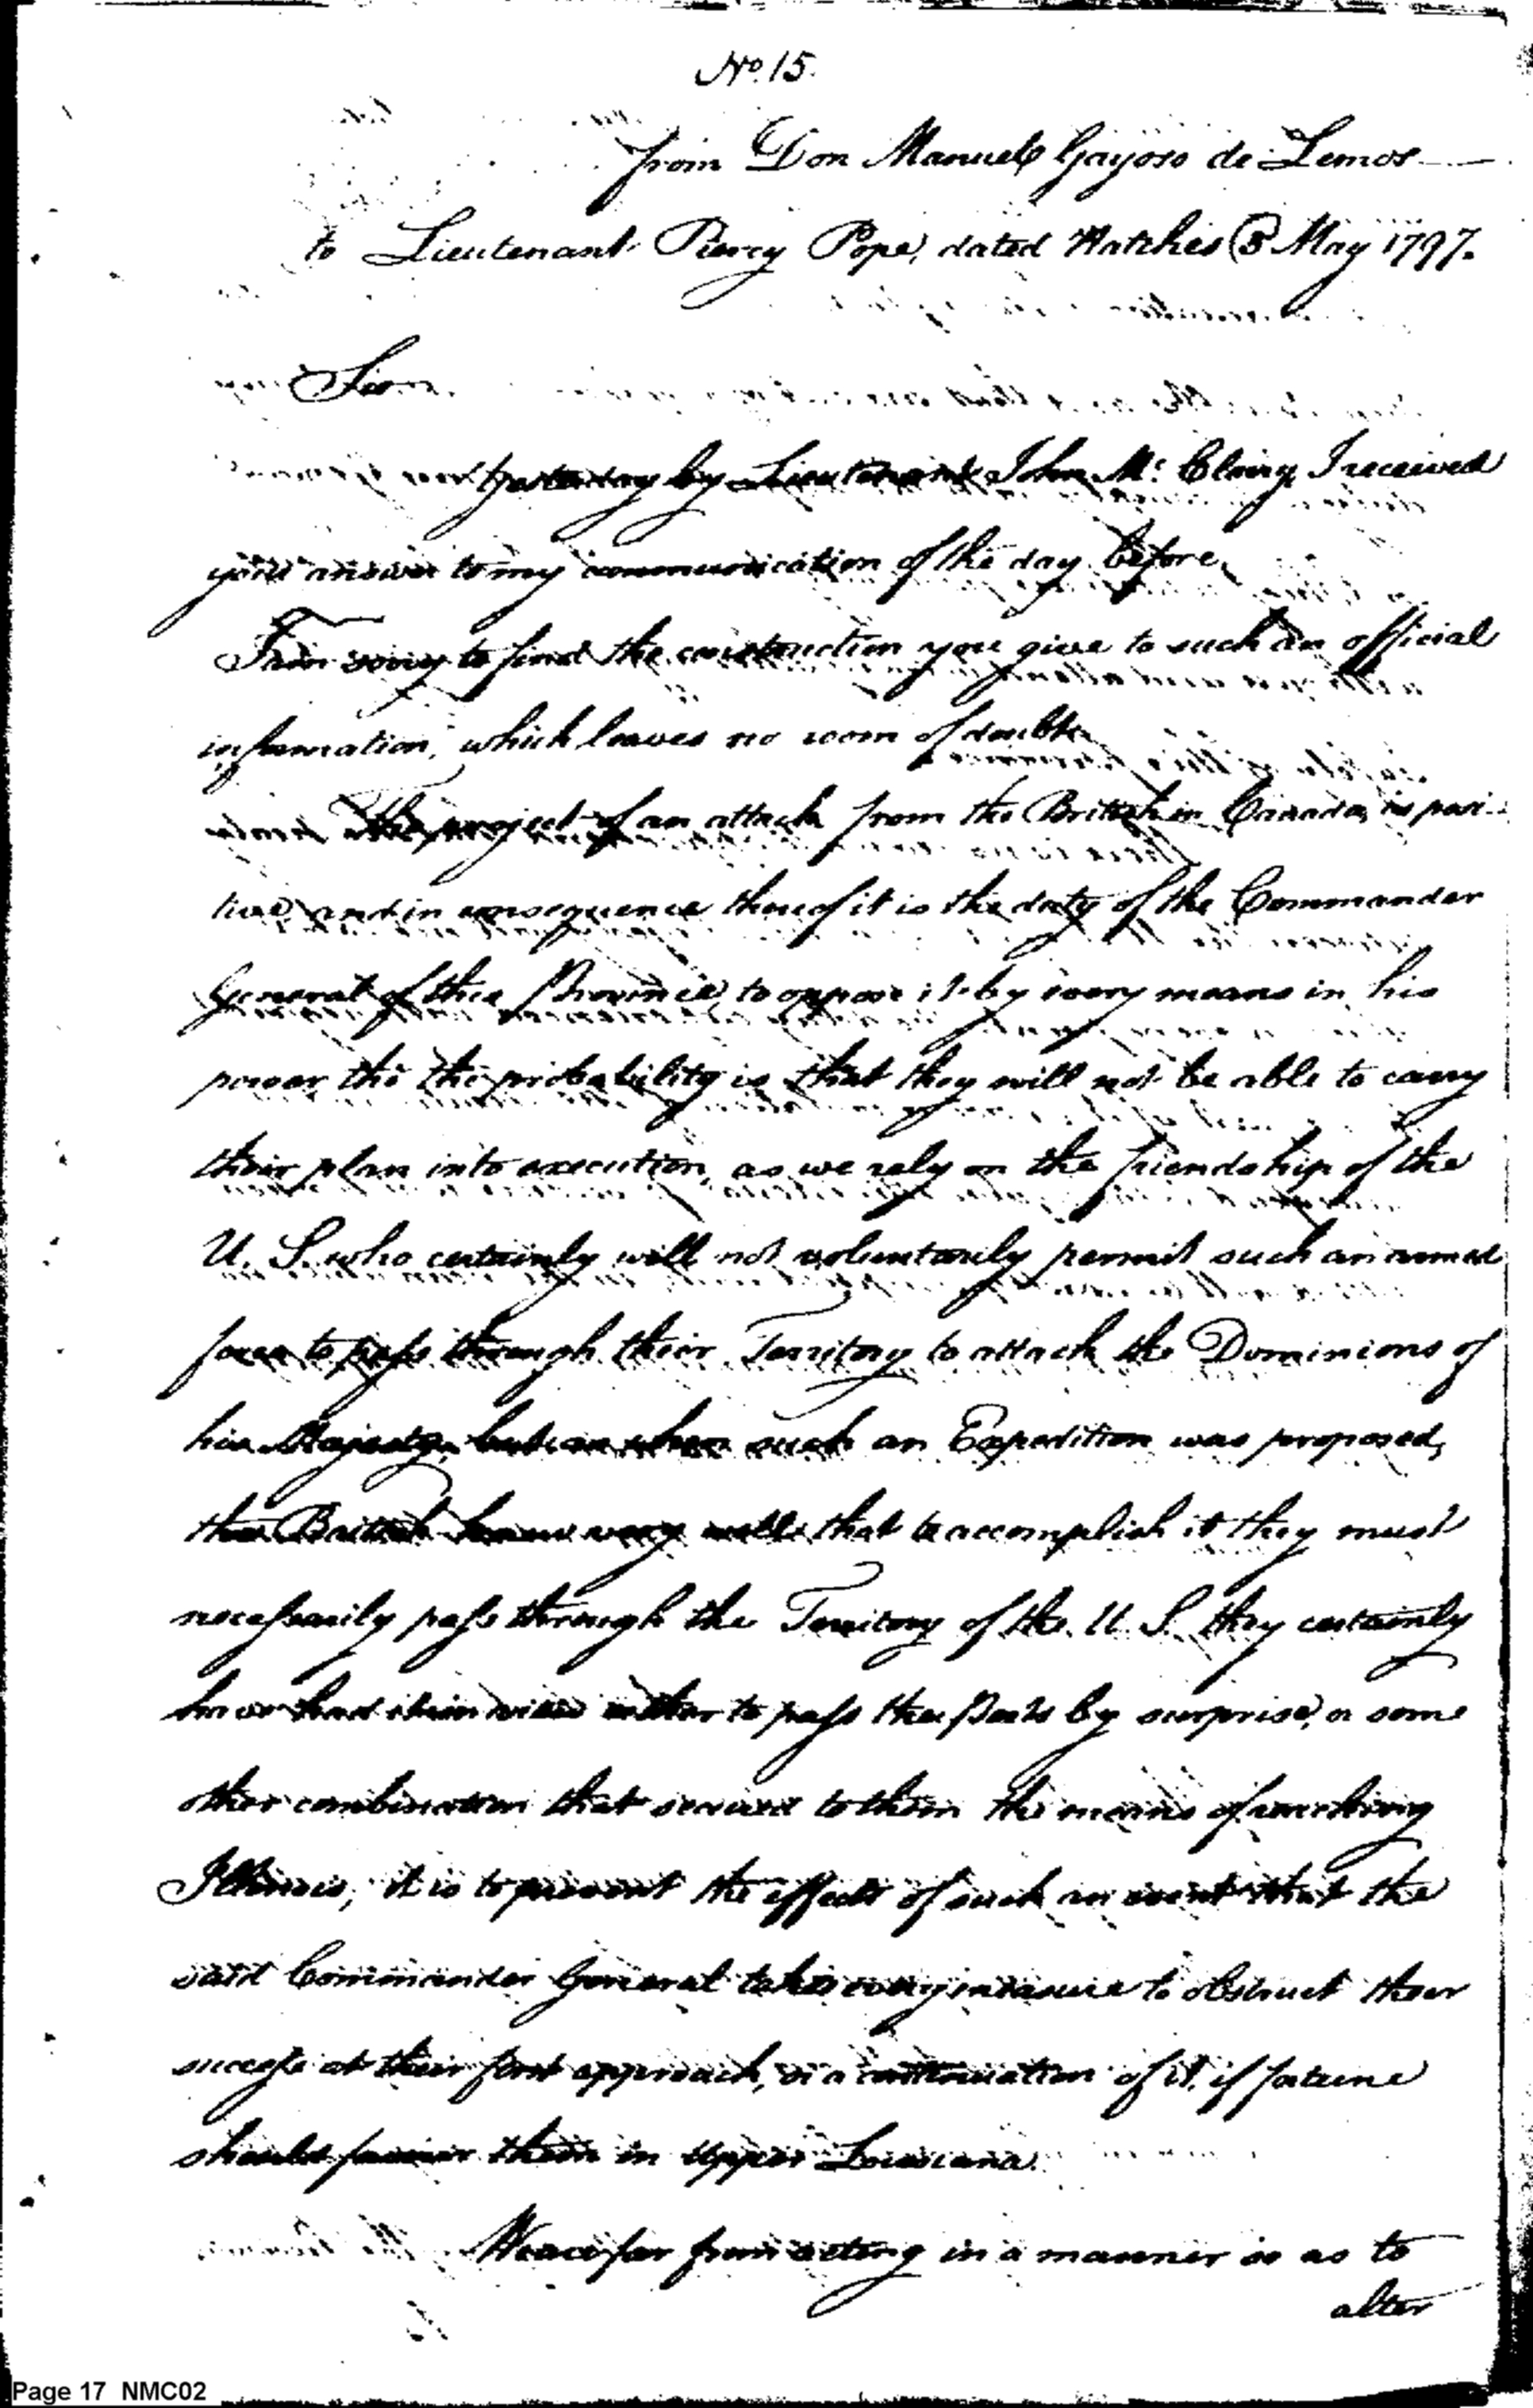 No. 15.
from Don Manuel Gayoso de Lemos
to Lieutenant Piercy Pope, dated Natches 3 May 1797.
Sir
Yesterday by Lieutenant John Mc. Clairy, I received
your answer to my communication of the day before,
I am sorry to find the construction you give to such an official
information, which leaves no room of doubt.
The project of an attack from the British in Canada, is posi-
tive, and in consequence thereof it is the duty of the Commander
General of this Province, to oppose it by every means in his
power, tho' the probability is that they will not be able to carry
their plan into execution, as we rely on the friendship of the
U. S. who certainly will not voluntarily permit such an armed
force to pass through their Territory to attack the Dominions of
his Majesty, but as when such an Expedition was proposed,
the British knew very well that to accomplish it they must
necessarily pass through the Territory of the U. S. they certainly
have had in view either to pass the Posts by surprise, or some
other combination that secured to them the means of reaching
Illinois; it is to prevent the effects of such an event that the
said Commander General takes every measure to obstruct their
success at their first approach, or a continuation of it, if fortune
should favour them in Upper Louisiana.
We are far from acting in a manner so as to
alter
Page 17 NMC02